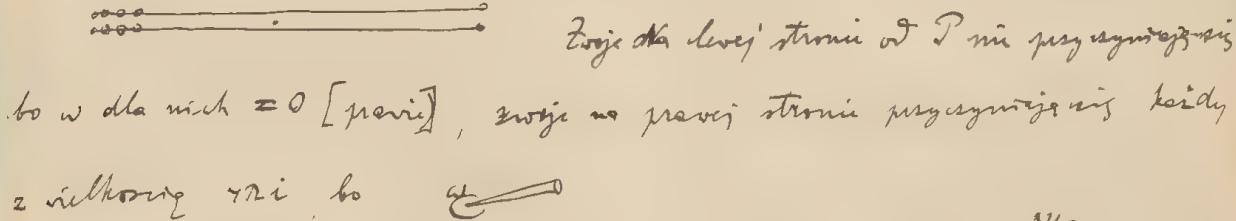 Zwoje na lewej stronie od P nie przyczyniają się
bo w dla nich = 0 [prawie], zwoje na prawej stronie przyczyniają się każdy
z wielkością 4πi bo ω